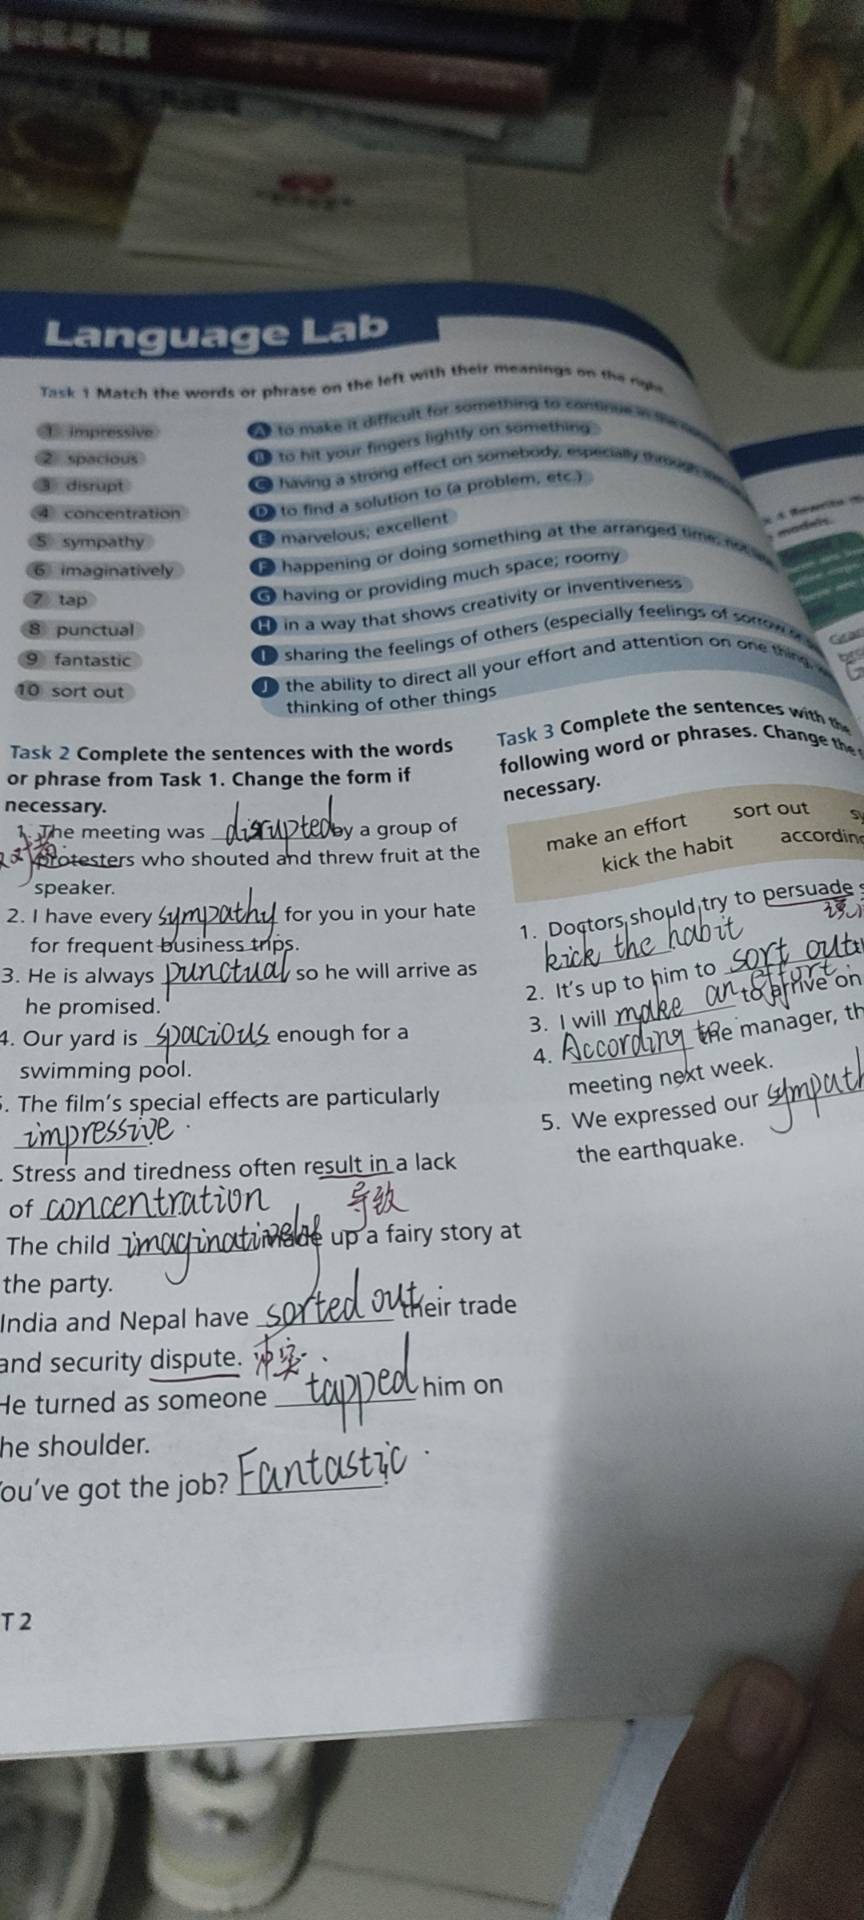 Language Lab
Task 1 Match the words or phrase on the left with their meanings on the right
1 impressive
2 spacious
3 disrupt
4 concentration
5 sympathy
6 imaginatively
7 tap
8 punctual
9 fantastic
10 sort out
A to make it difficult for something to continue in the
B to hit your fingers lightly on something
C having a strong effect on somebody, especially through
D to find a solution to (a problem, etc.)
E marvelous; excellent
F happening or doing something at the arranged time; not
G having or providing much space; roomy
H in a way that shows creativity or inventiveness
I sharing the feelings of others (especially feelings of sorrow
J the ability to direct all your effort and attention on one thing,
thinking of other things
Task 2 Complete the sentences with the words
or phrase from Task 1. Change the form if
necessary.
1. The meeting was disrupted by a group of
protesters who shouted and threw fruit at the
speaker.
2. I have every sympathy for you in your hate
for frequent business trips.
3. He is always punctual so he will arrive as
he promised.
4. Our yard is spacious enough for a
swimming pool.
. The film's special effects are particularly
impressive.
. Stress and tiredness often result in a lack
of concentration
导致
The child imaginatively made up a fairy story at
the party.
India and Nepal have sorted out their trade
and security dispute. 冲突
He turned as someone tapped him on
he shoulder.
ou've got the job? Fantastic.
T 2
Task 3 Complete the sentences with the
following word or phrases. Change the
necessary.
make an effort sort out
kick the habit according
1. Doctors should try to persuade
kick the habit
2. It's up to him to sort out
3. I will make an effort to arrive on
4. According to the manager, th
meeting next week.
5. We expressed our sympath
the earthquake.